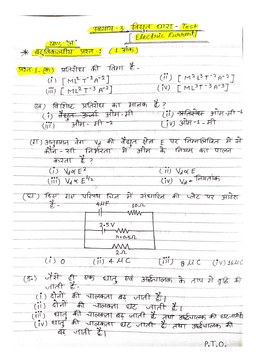 अध्याय-3 विद्युत धारा - Test
खण्ड 'अ' [Electric Current]
* बहुविकल्पीय प्रश्न : (1 अंक)
प्रश्न-1.(क) प्रतिरोध की विमा है -
(i) [ML²T⁻³A⁻²] (ii) [ML²T⁻²A⁻²]
(iii) [ML²T⁻³A⁻²] (iv) [ML³T⁻³A⁻²]
(ख) विशिष्ट प्रतिरोध का मात्रक है ?
(i) ओम-मी (ii) ओम-मी
(iii) ओम-मी⁻² (iv) ओम-मी
(ग) अनुगमन वेग Vd की वैद्युत क्षेत्र E पर निम्नलिखित में से
कौन-सी निर्भरता में ओम के नियम का पालन
करता है ?
(i) Vd ∝ E² (ii) Vd ∝ E
(iii) Vd ∝ E^1/2 (iv) Vd = नियतांक
(घ) दिए गए परिपथ चित्र में संधारित्र की प्लेट पर आवेश
है -
4μF 10Ω
2.5V
r=0.5Ω
2Ω
(i) 0 (ii) 4 μC (iii) 8 μC (iv)
(ङ) जैसे ही एक धातु एवं अर्द्धचालक के ताप में वृद्धि की
जाती है -
(i) दोनों की चालकता बढ़ जाती है।
(ii) दोनों की चालकता घट जाती है।
(iii) धातु की चालकता बढ़ जाती है तथा अर्द्धचालक की घट जाती
(iv) धातु की चालकता घट जाती है तथा अर्द्धचालक की
बढ़ जाती है।
P.T.O.